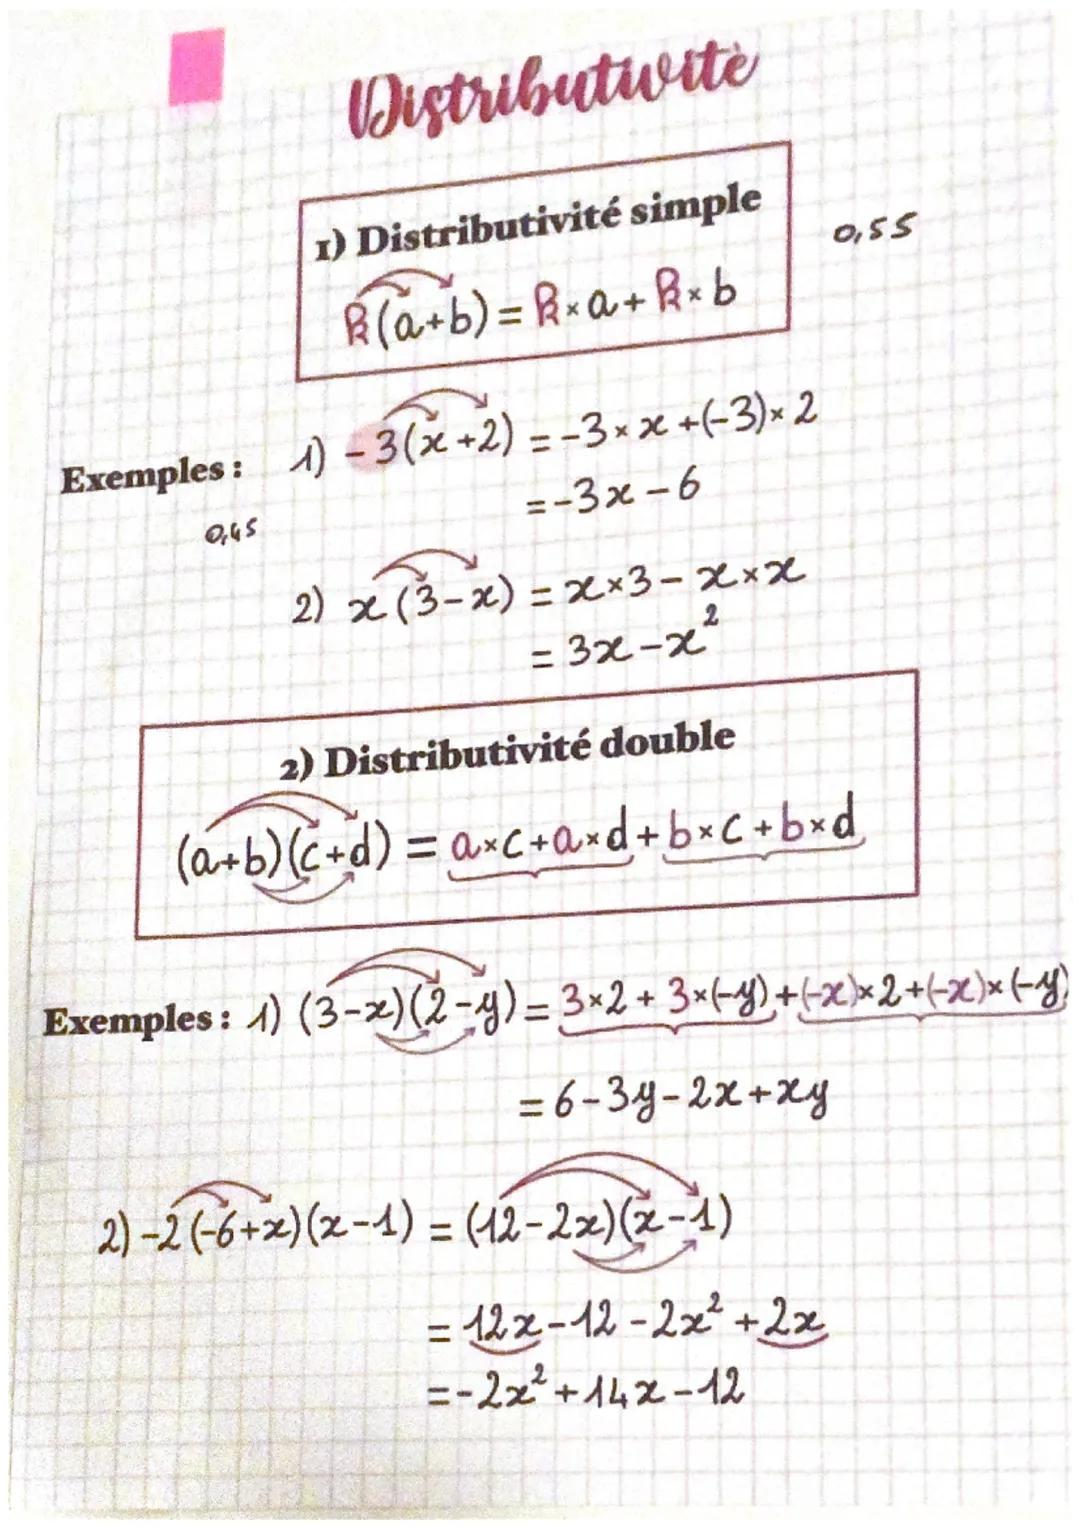 Distributivité
1) Distributivité simple
0,55
k(a+b) = k×a + k×b
Exemples : 1) -3(x+2) = -3×x+(-3)×2
= -3x - 6
0,45
2) x(3-x) = x×3 - x×x
= 3x - x²
2) Distributivité double
(a+b)(c+d) = a×c+a×d+b×c+b×d
Exemples : 1) (3-x)(2-y) = 3×2 + 3×(-y)+(-x)×2+(-x)×(-y)
= 6-3y-2x+xy
2) -2(-6+x)(x-1) = (12-2x)(x-1)
= 12x-12-2x²+2x
= -2x²+14x-12